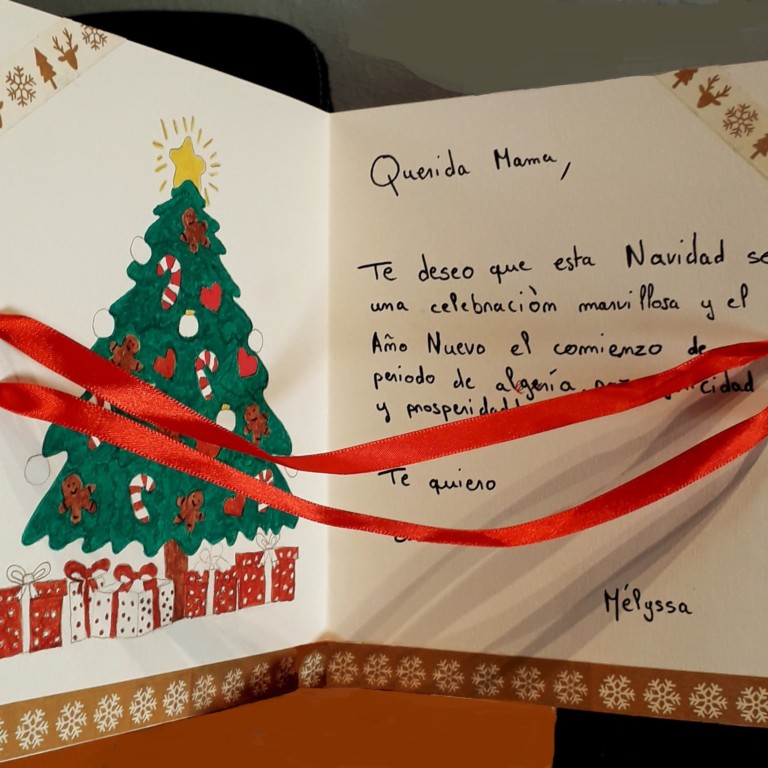 Querida Mama,
Te deseo que esta Navidad se
una celebraciòn marvillosa y el
Año Nuevo el comienzo de
periodo de algería, cidad
y prosperidad
Te quiero
Mélyssa